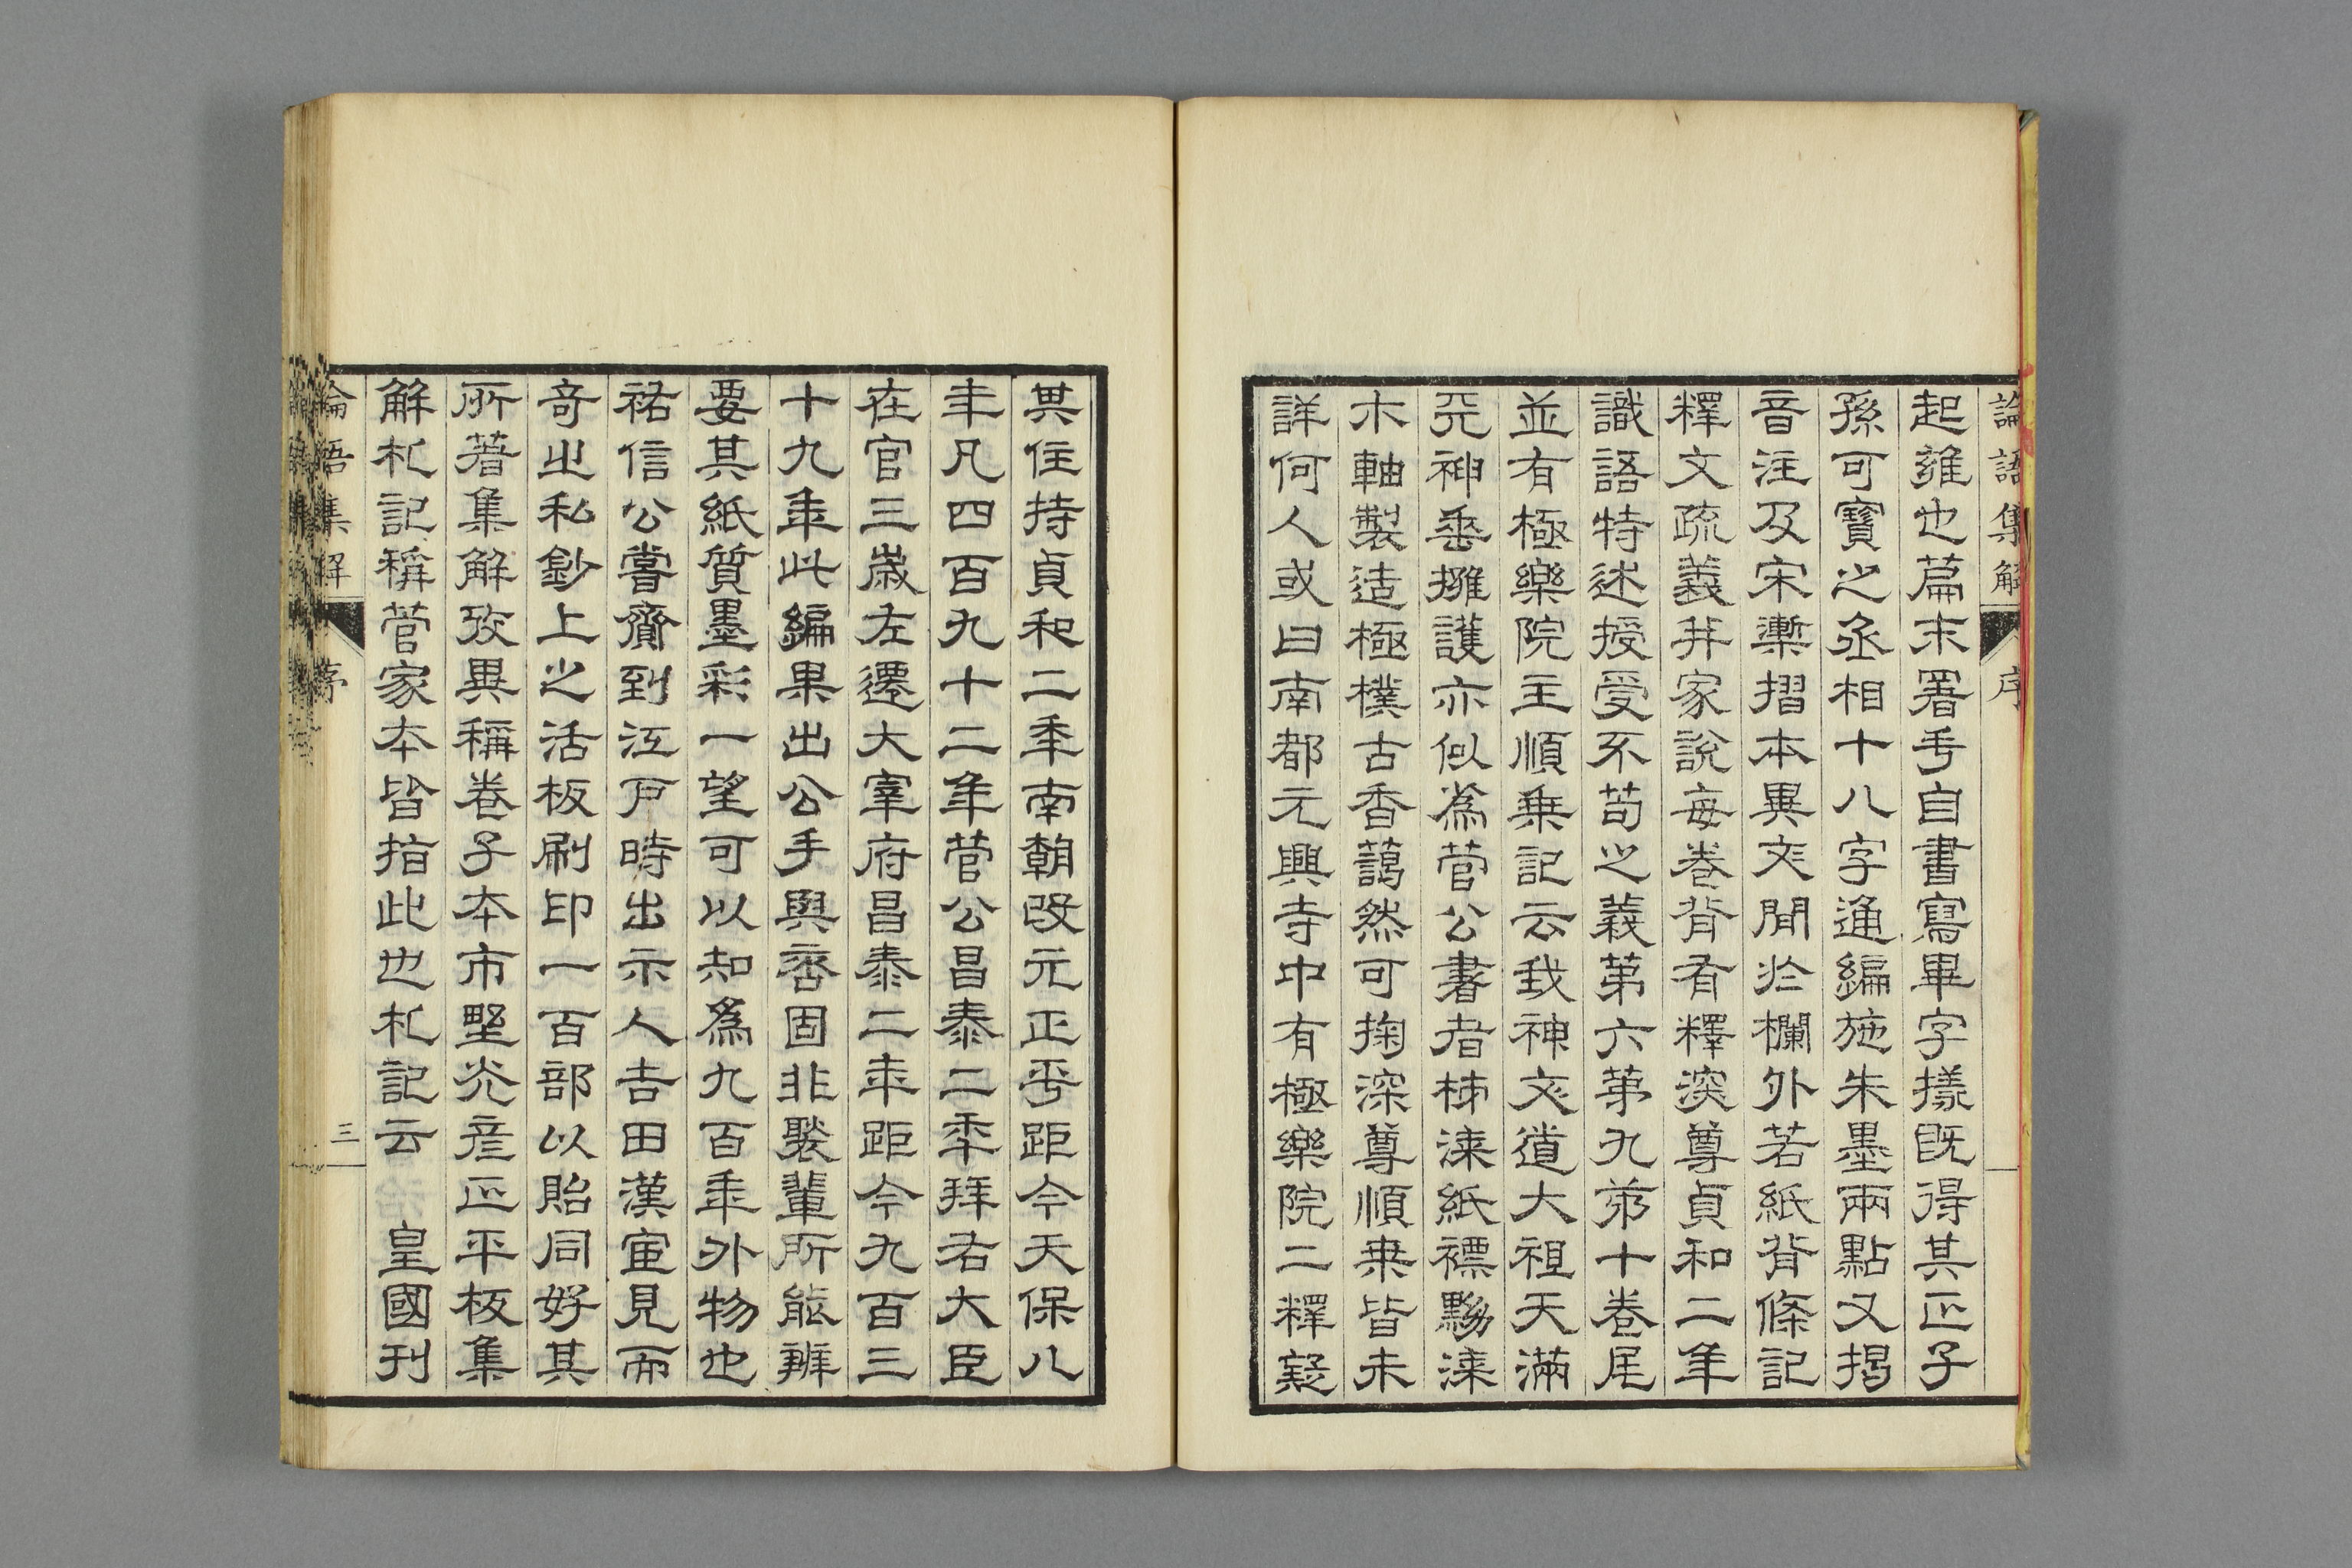 論語集解 序
起雖也篇末署手自書寫畢字㨾既得其正子
孫可寶之丞相十八字通編施朱墨兩點又揭
音注及宋槧摺本異文閒於欄外若紙背條記
釋文疏義并家說每卷背有釋深尊貞和二年
識語特述授受不苟之義第六第九第十卷尾
並有極樂院主順乗記云我神文道大祖天滿
天神垂擁護亦似爲菅公書者柹漆紙褾黝漆
木軸製造極樸古香藹然可掬深尊順乗皆未
詳何人或曰南都元興寺中有極樂院二釋疑
其住持貞和二年南朝改元正平距今天保八
年凡四百九十二年菅公昌泰二年拜右大臣
在官三歲左遷大宰府昌泰二年距今九百三
十九年此編果出公手與否固非褧輩所能辨
要其紙質墨彩一望可以知爲九百年外物也
祐信公嘗齎到江戶時出示人吉田漢宦見而
奇出私鈔上之活板刷印一百部以貽同好其
所著集解攷異稱卷子本市野光彥正平板集
解札記稱菅家本皆指此也札記云 皇國刊
論語集解 序 三